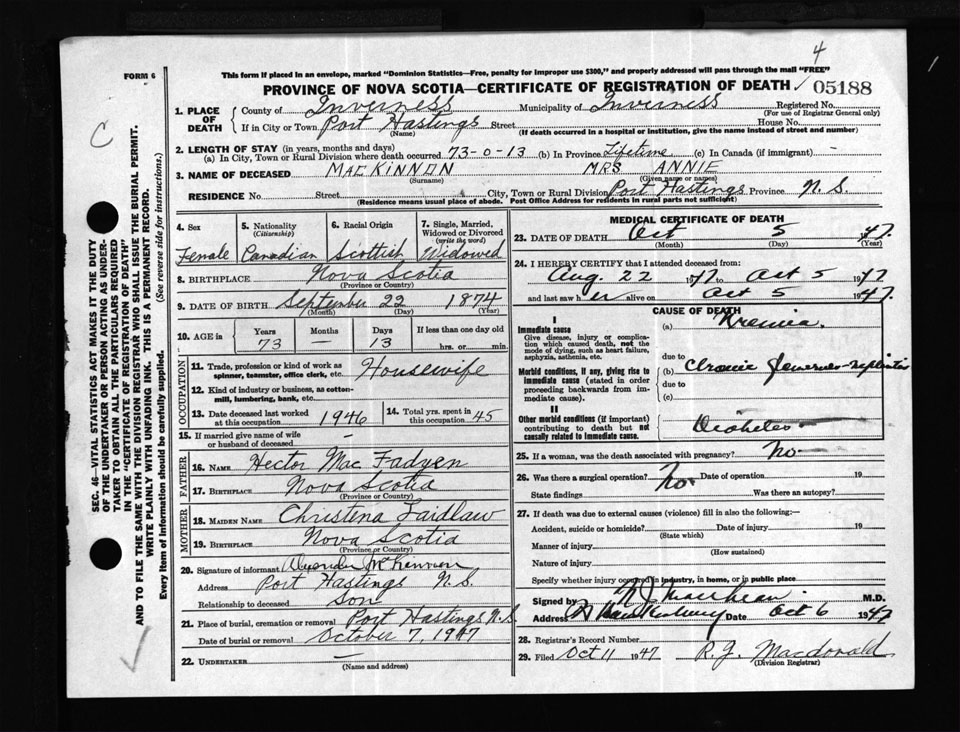 4
FORM 6
This form if placed in an envelope, marked "Dominion Statistics—Free, penalty for improper use $300," and properly addressed will pass through the mail "FREE"
PROVINCE OF NOVA SCOTIA—CERTIFICATE OF REGISTRATION OF DEATH
05188
1. PLACE OF DEATH
County of Inverness Municipality of Inverness Registered No.
(For use of Registrar General only)
If in City or Town Port Hastings Street House No.
(Name) (If death occurred in a hospital or institution, give the name instead of street and number)
2. LENGTH OF STAY (in years, months and days)
(a) In City, Town or Rural Division where death occurred 73-0-13 (b) In Province Lifetime (c) In Canada (if immigrant) -
3. NAME OF DECEASED MACKINNON MRS ANNIE
(Surname) (Given name or names)
RESIDENCE No. Street City, Town or Rural Division Port Hastings Province N.S.
(Residence means usual place of abode. Post Office Address for residents in rural parts not sufficient)
4. Sex
Female
5. Nationality
(Citizenship)
Canadian
6. Racial Origin
Scottish
7. Single, Married, Widowed or Divorced
(write the word)
Widowed
8. BIRTHPLACE Nova Scotia
(Province or Country)
9. DATE OF BIRTH September 22 1874
(Month) (Day) (Year)
10. AGE in Years Months Days If less than one day old
73 — 13 hrs. or min.
OCCUPATION
11. Trade, profession or kind of work as spinner, teamster, office clerk, etc. Housewife
12. Kind of industry or business, as cotton-mill, lumbering, bank, etc.
13. Date deceased last worked at this occupation 1946
14. Total yrs. spent in 45
15. If married give name of wife or husband of deceased —
FATHER
16. NAME Hector MacFadyen
17. BIRTHPLACE Nova Scotia
(Province or Country)
MOTHER
18. MAIDEN NAME Christena Laidlaw
19. BIRTHPLACE Nova Scotia
(Province or Country)
20. Signature of informant
Address Port Hastings N.S.
Relationship to deceased Son
21. Place of burial, cremation or removal Port Hastings N.S.
Date of burial or removal October 7, 1947
22. UNDERTAKER —
(Name and address)
MEDICAL CERTIFICATE OF DEATH
23. DATE OF DEATH Oct 5 1947
(Month) (Day) (Year)
24. I HEREBY CERTIFY that I attended deceased from:
Aug. 22 1947 to Oct 5 1947
and last saw her alive on Oct 5 1947
CAUSE OF DEATH
I
Immediate cause
Give disease, injury or complication which caused death, not the mode of dying, such as heart failure, asphyxia, asthenia, etc.
(a)
due to
Morbid conditions, if any, giving rise to immediate cause (stated in order proceeding backwards from immediate cause).
(b)
due to
(c)
II
Other morbid conditions (if important) contributing to death but not causally related to immediate cause.
Diabetes
25. If a woman, was the death associated with pregnancy? No
26. Was there a surgical operation? No Date of operation 19
State findings Was there an autopsy?
27. If death was due to external causes (violence) fill in also the following:—
Accident, suicide or homicide? Date of injury 19
(State which)
Manner of injury
(How sustained)
Nature of injury
Specify whether injury occurred in industry, in home, or in public place
Signed by M.D.
Address Date Oct 6 1947
28. Registrar's Record Number
29. Filed Oct 11 1947 R.J. Macdonald
(Division Registrar)
C
SEC. 46—VITAL STATISTICS ACT MAKES IT THE DUTY
OF THE UNDERTAKER OR PERSON ACTING AS UNDERTAKER
TO OBTAIN ALL THE PARTICULARS REQUIRED
IN THE "CERTIFICATE OF REGISTRATION OF DEATH"
AND TO FILE THE SAME WITH THE DIVISION REGISTRAR WHO SHALL ISSUE THE BURIAL PERMIT.
WRITE PLAINLY WITH UNFADING INK. THIS IS A PERMANENT RECORD.
Every item of information should be carefully supplied. (See reverse side for instructions.)